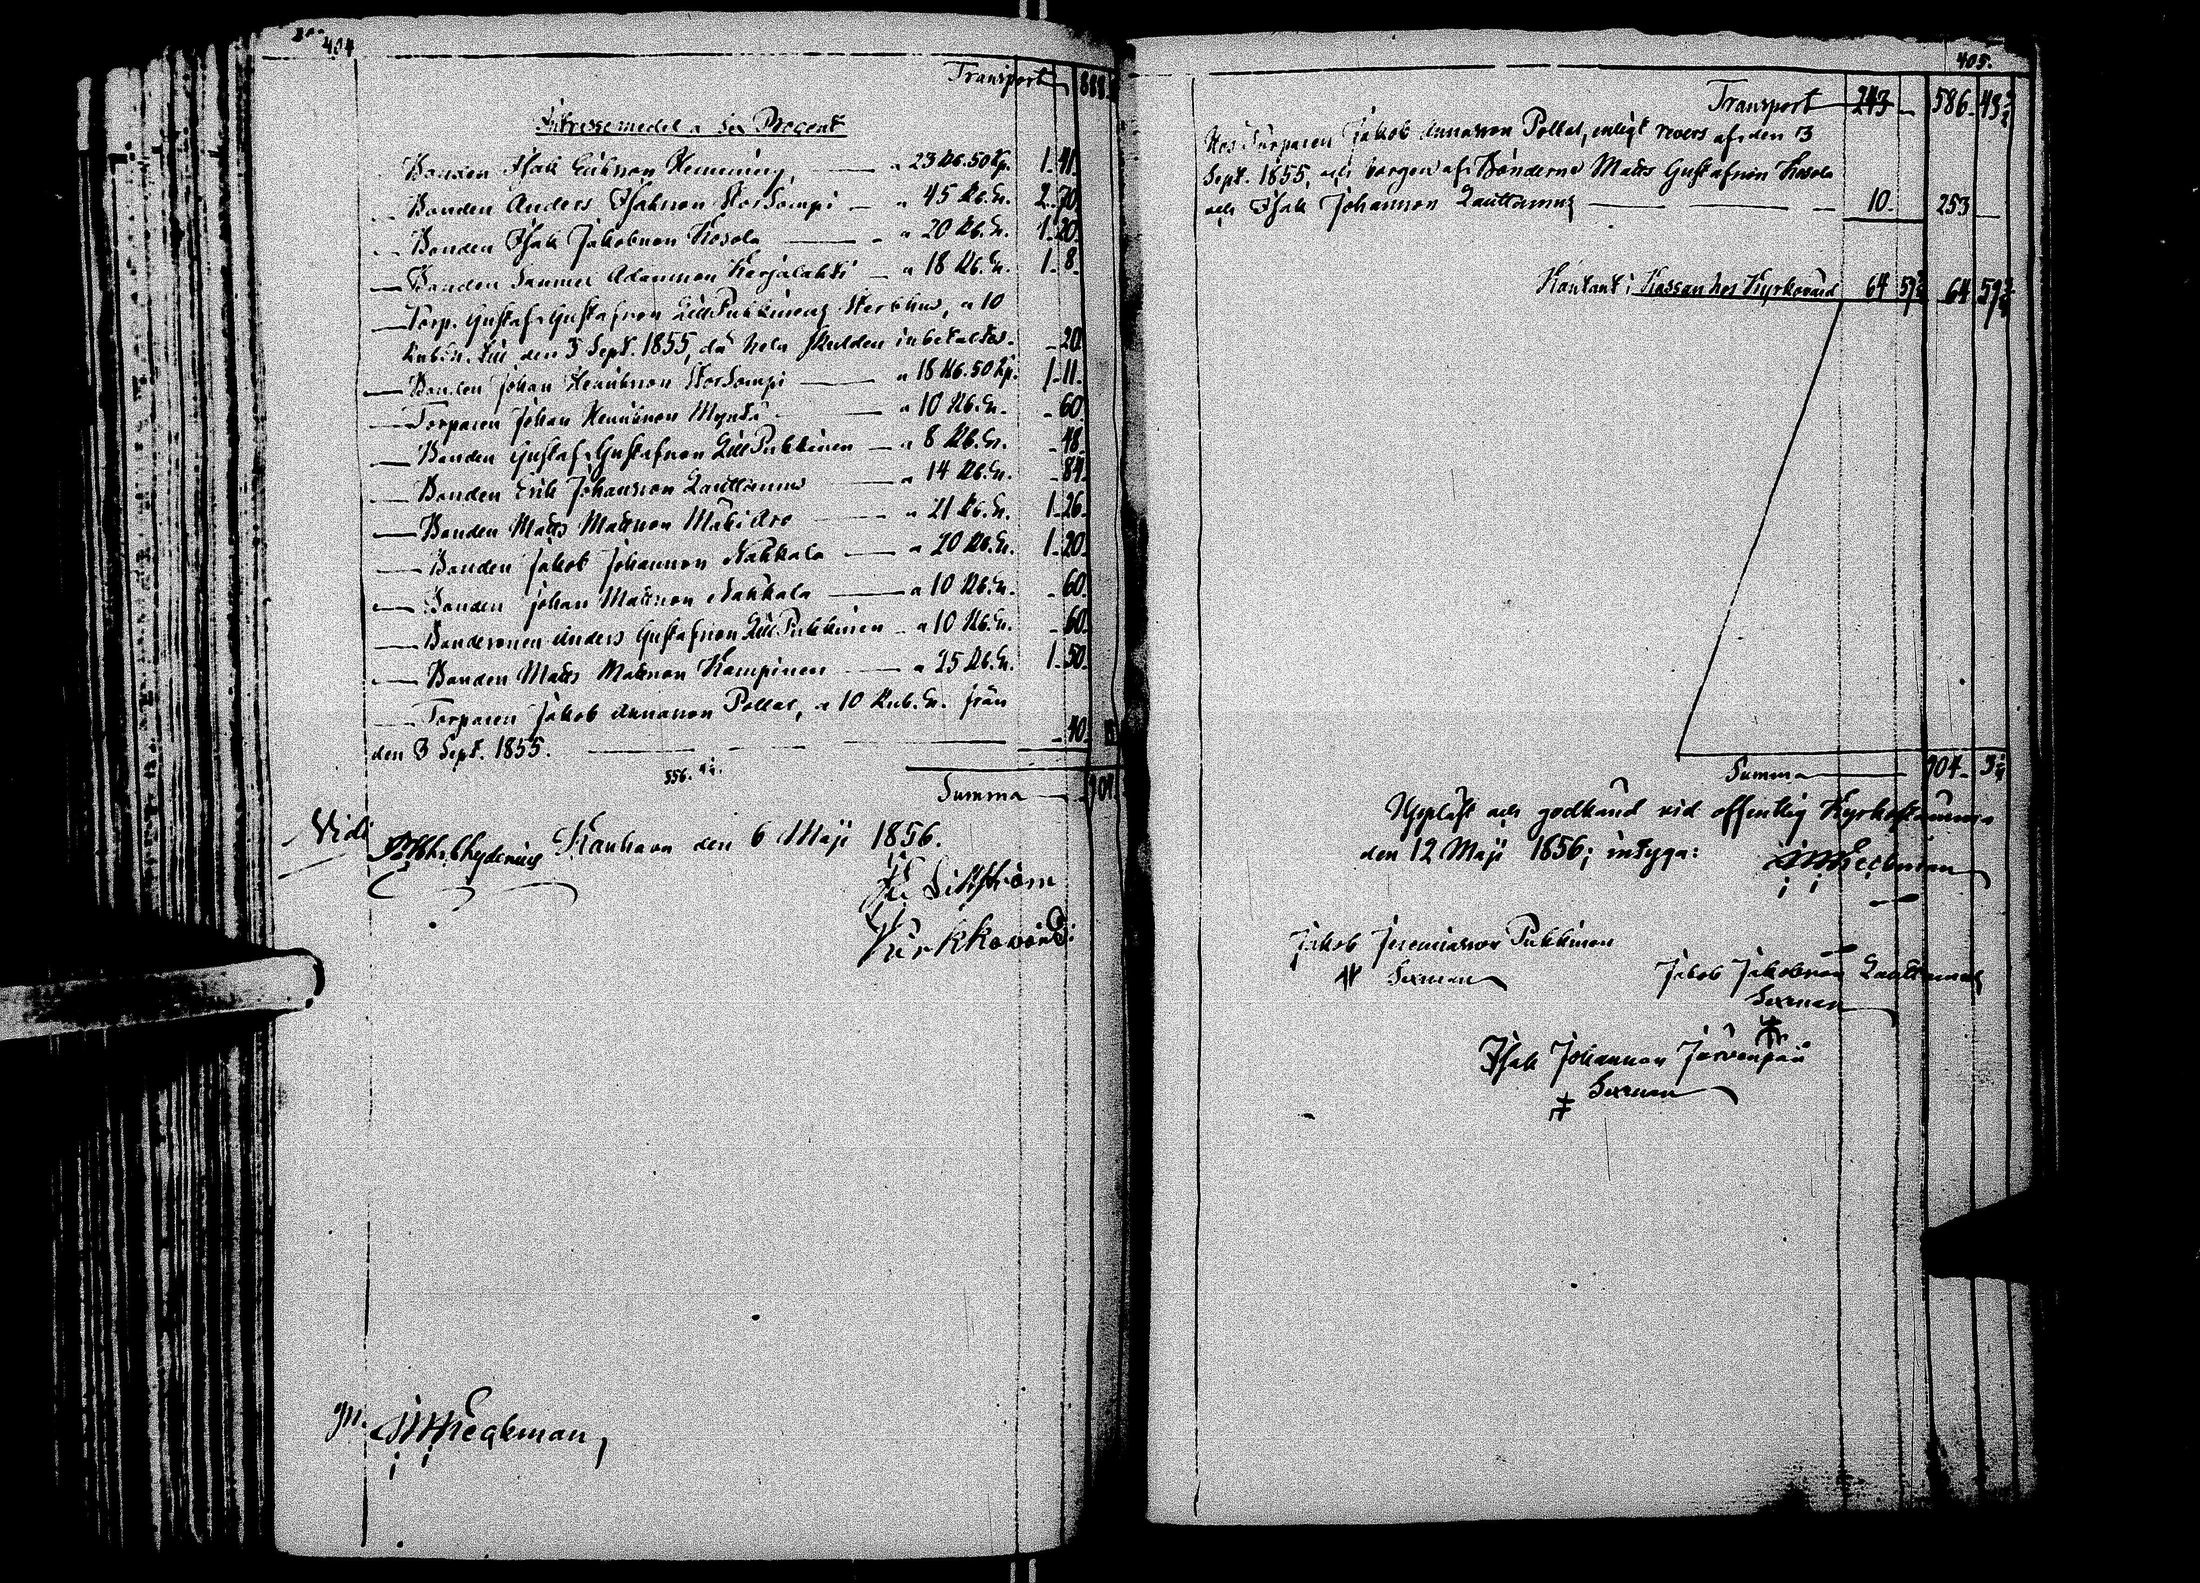 404
Transport 888
Intressemedel a Sex Procent
Bonden Isak Eriksson Hemming, — a 23 Rb. 50 Kp. 1. 41.
— Bonden Anders Isaksson Storsompi — a 45 Rb. Sr. 2. 70.
— Bonden Isak Jakobsson Kosola — a 20 Rb. Sr. 1. 20.
— Bonden Samuel Adamsson Karjalahti — a 18 Rb. Sr. 1. 8.
— Torp. Gustaf Gustafsson LillPukkinens Sterbhus, a 10
Rub. Sr. till den 3 Sept. 1855, då hela skulden inbetaltes. - 20.
— Bonden Johan Henriksson Storsompi — a 18 Rb. 50 Kp. 1. 11.
— Torparen Johan Henriksson — a 10 Rb. Sr. - 60.
— Bonden Gustaf Gustafsson LillPukkinen — a 8 Rb. Sr. - 48.
— Bonden Erik Johansson Lauttamus — a 14 Rb. Sr. - 84.
— Bonden Matts Mattsson Mäki Aro — a 21 Rb. Sr. 1. 26.
— Bonden Jakob Johansson Nahkala — a 20 Rb. Sr. 1. 20.
— Bonden Johan Mattsson Nahkala — a 10 Rb. Sr. - 60.
— Bondesonen Anders Gustafsson LillPukkinen — a 10 Rb. Sr. - 60.
— Bonden Matts Mattsson Kampinen — a 25 Rb. Sr. 1. 50.
— Torparen Jakob Annasson Pollat, a 10 Rub. Sr. från
den 3 Sept. 1855. — - 40.
556.
Summa — 904
Vidi Kauhava den 6 Maji 1856.
Sillström
Kirkkovärdi
405.
Transport 243 — 586. 43
Hos Torparen Jakob Annasson Pollat, enligt revers af den 13
Sept. 1855, och borgen af Bönderne Matts Gustafsson Kosola
och Isak Johansson Lauttamus — 10. 253 —
Kontant i Kassan hos Kyrkovärd 64 59 64 59
Summa — 904. 3
Uppläst och godkänd vid offentlig Kyrkostämma
den 12 Maji 1856; intyga: Hedman
Jakob Jeremiasson Pukkinen
Sexman
Jakob Jakobsson Lauttamus
Sexman
Isak Johansson Järvenpää
Sexman
Hedman